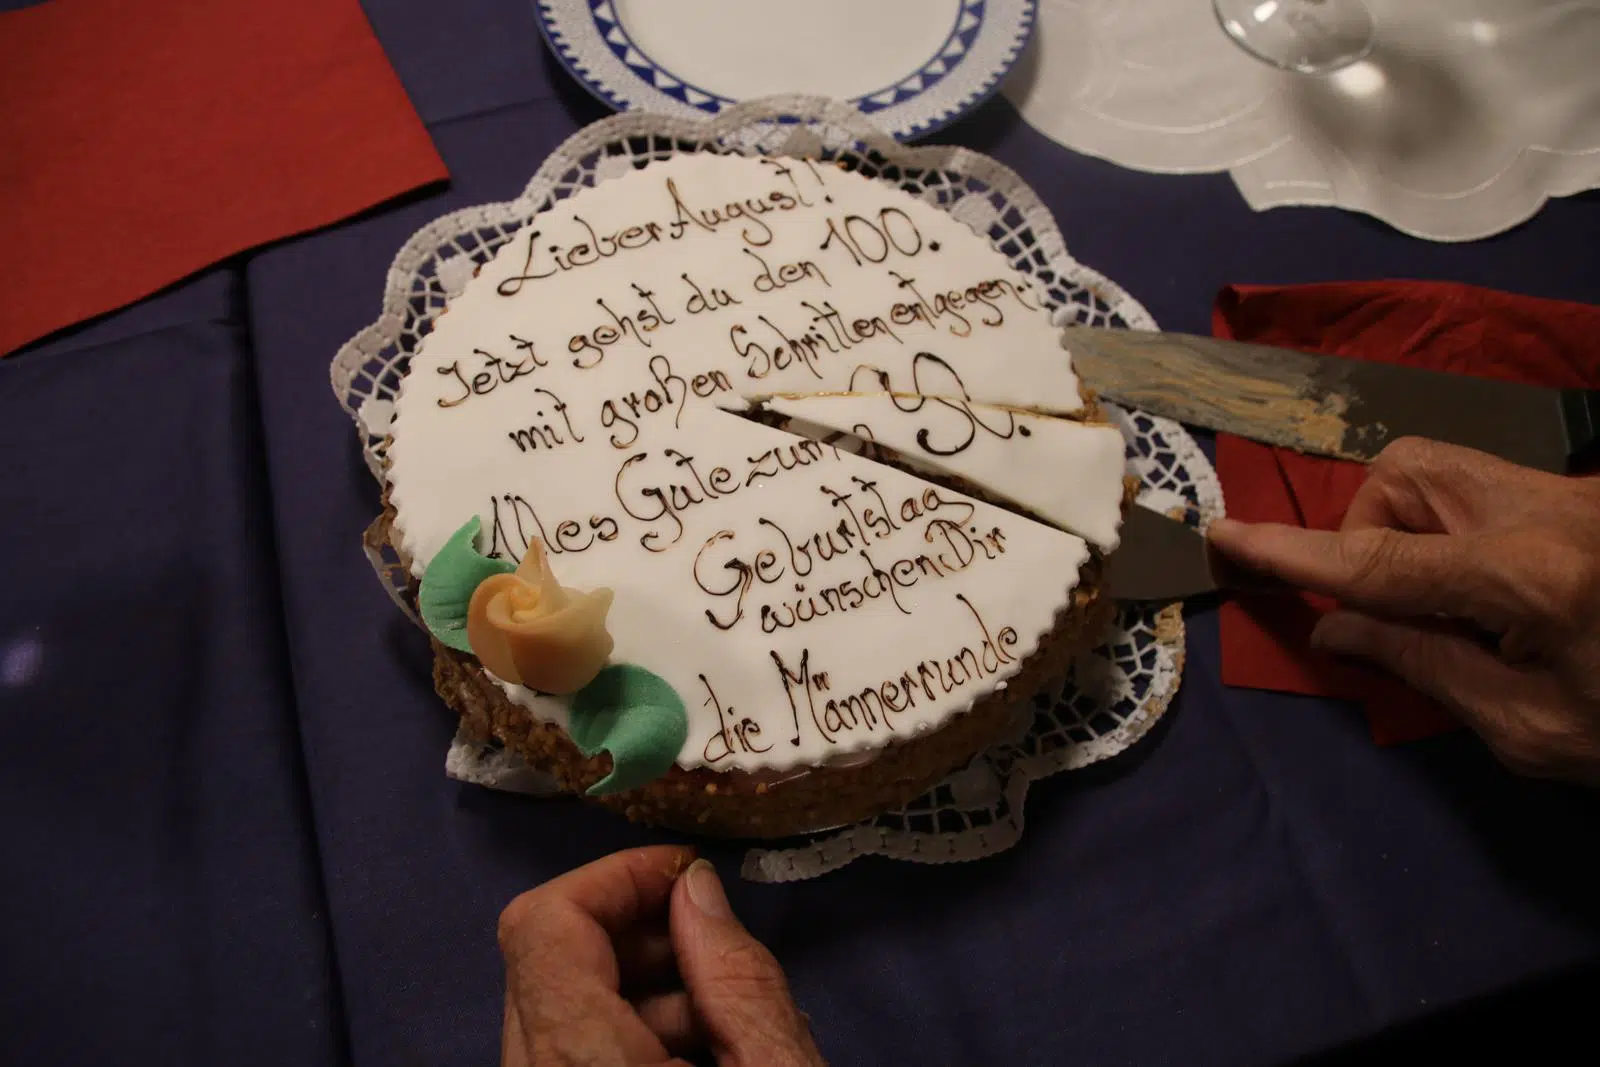 Lieber August!
Jetzt gehst du den 100.
mit großen Schritten entgegen..
Alles Gute zum
Geburtstag
wünschen Dir
die Männerrunde